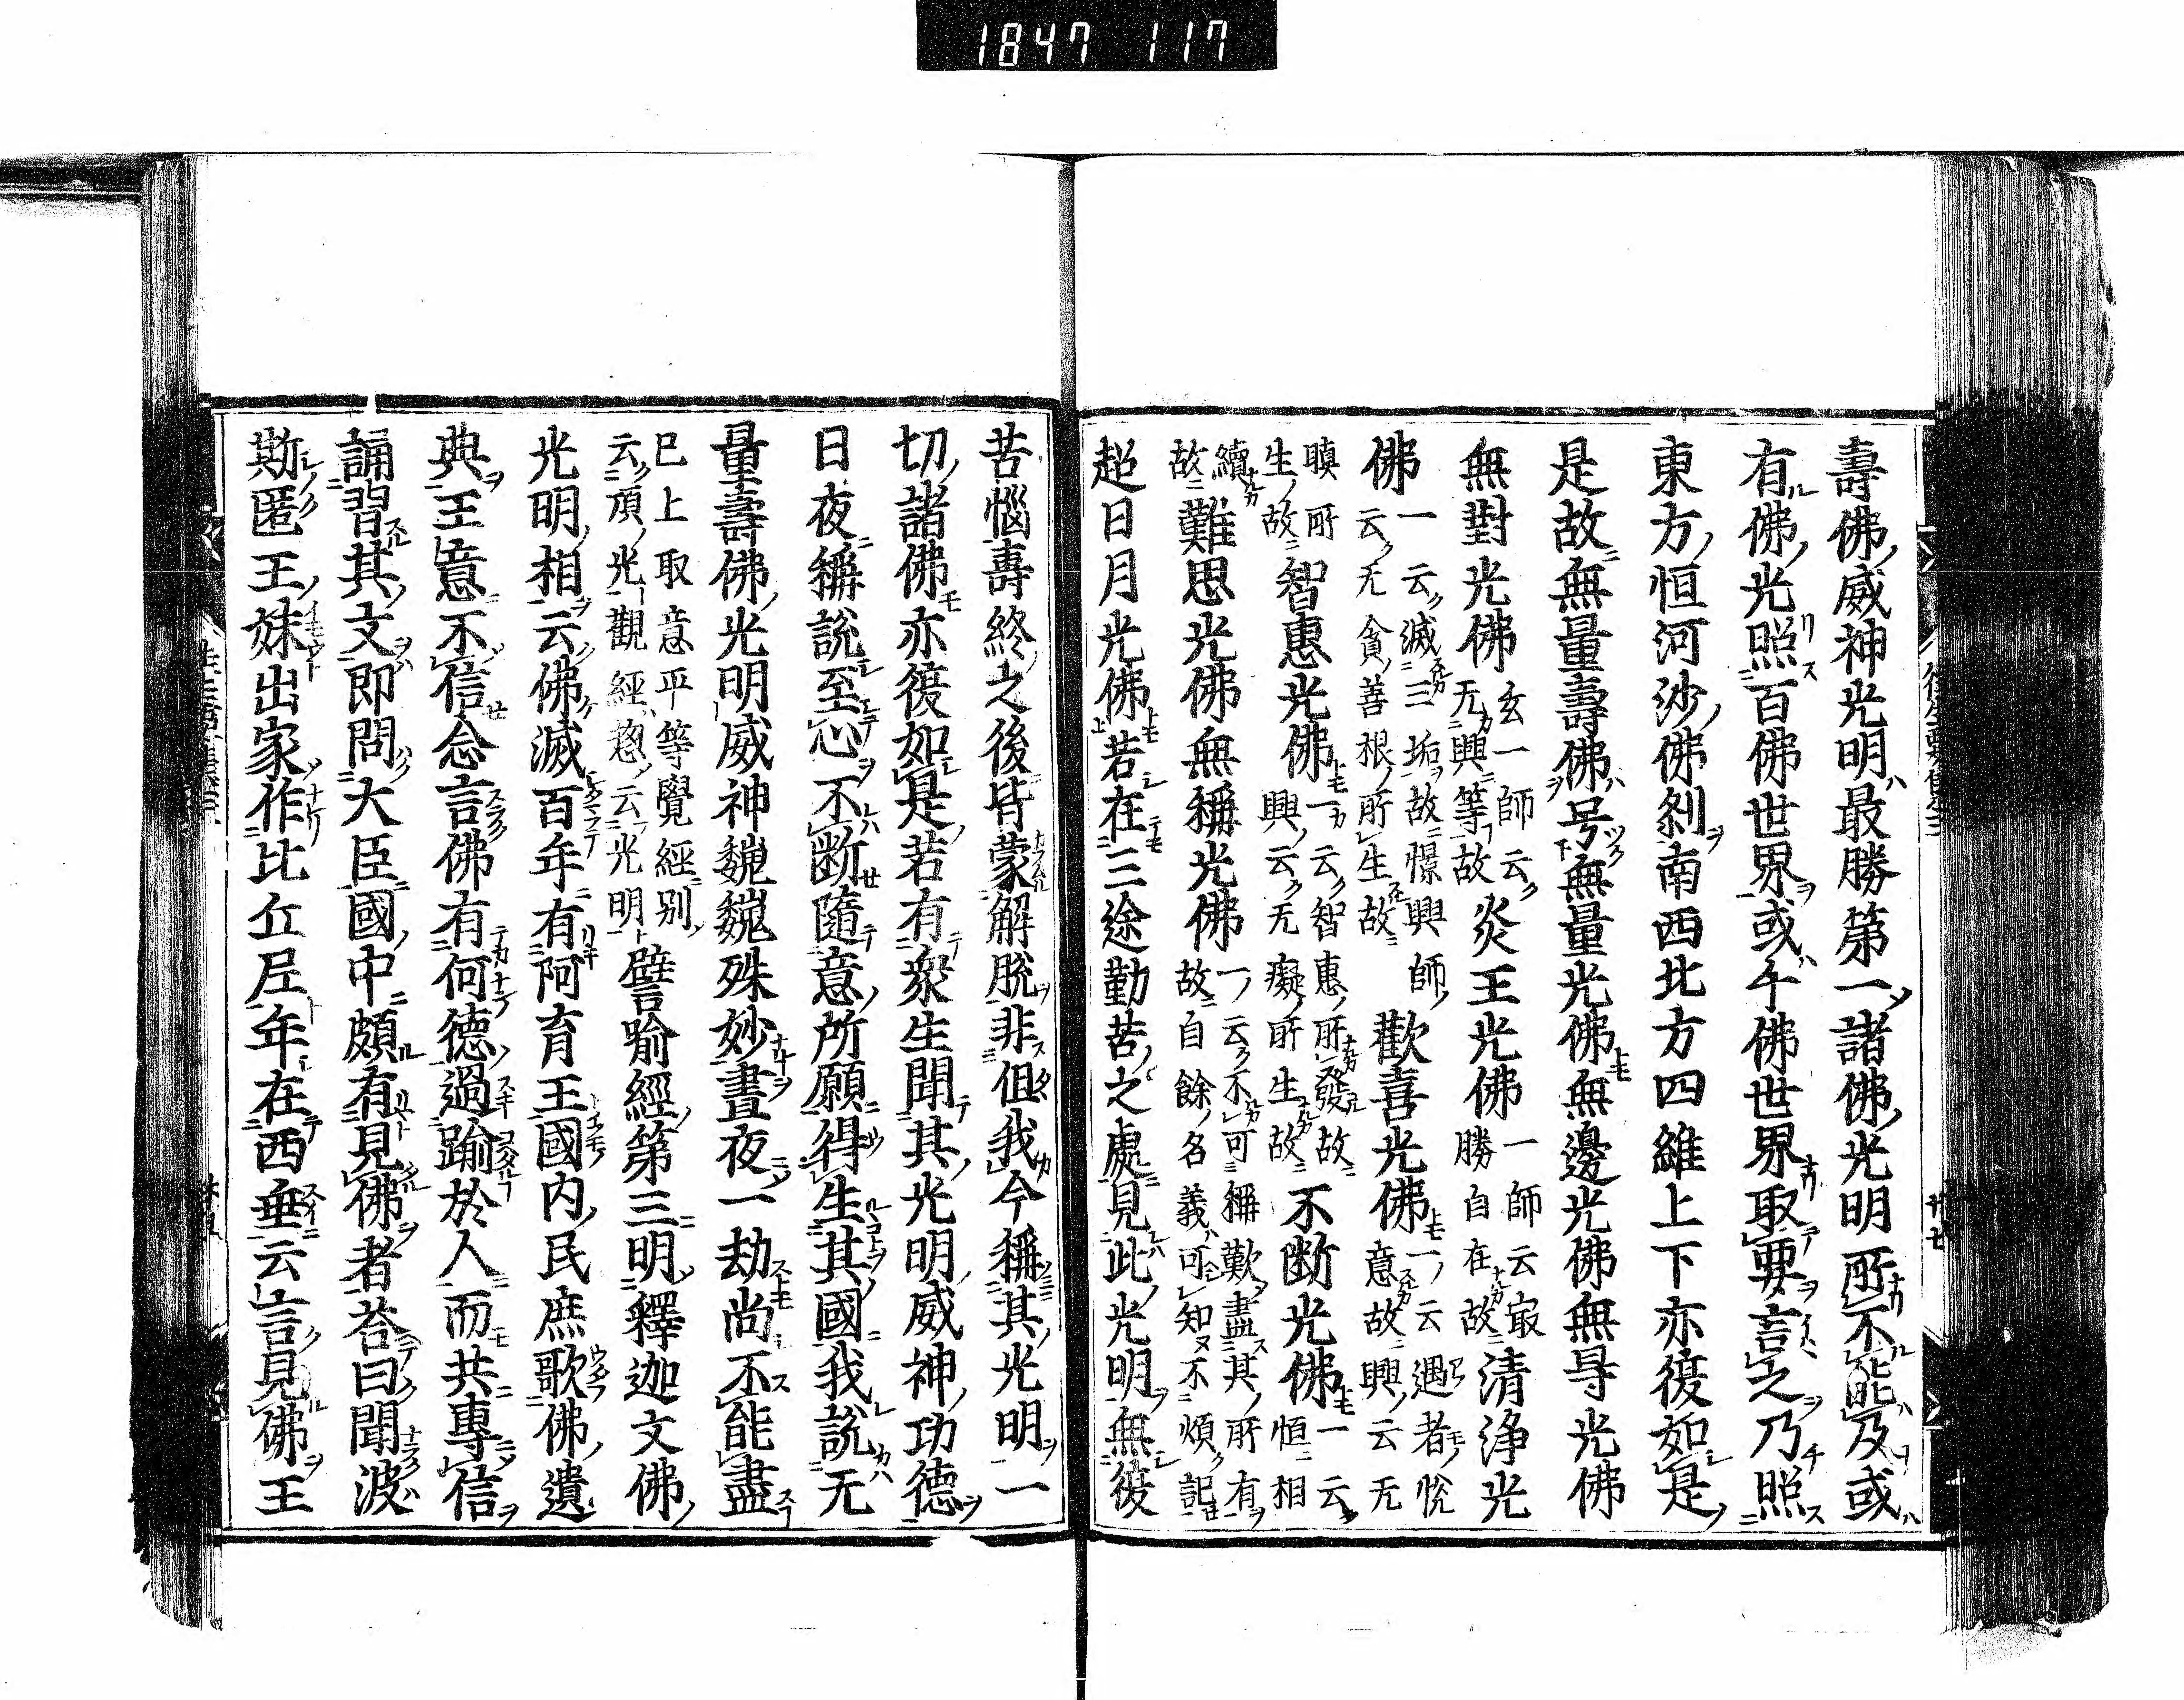 1847 117
壽佛威神光明最勝第一諸佛光明所不能及或
有佛光照百佛世界或千佛世界取要言之乃照
東方恒河沙佛刹南西北方四維上下亦復如是
是故無量壽佛号無量光佛無邊光佛無㝵光佛
無對光佛玄一師云无興等故炎王光佛一師云㝡勝自在故清淨光
佛一云滅三垢故憬興師云无貪善根所生故歡喜光佛一云遇者悅意故興云无
瞋所生故智惠光佛一云智惠所發故興云无癡所生故不断光佛一云恒相
續故難思光佛無稱光佛一云不可稱歎盡其所有故自餘名義可知不煩記
超日月光佛若在三途勤苦之處見此光明無復
苦惱壽終之後皆蒙解脫非但我今稱其光明一
切諸佛亦復如是若有衆生聞其光明威神功德
日夜稱說至心不断隨意所願得生其國我說无
量壽佛光明威神巍巍殊妙晝夜一劫尚不能盡
已上取意平等覺經別云頂光觀經惣云光明譬喻經第三明釋迦文佛
光明相云佛滅百年有阿育王國内民庶歌佛遺
典王意不信念言佛有何德過踰於人而共專信
誦習其文即問大臣國中頗有見佛者荅曰聞波
斯匿王妹出家作比丘尼年在西垂云言見佛王